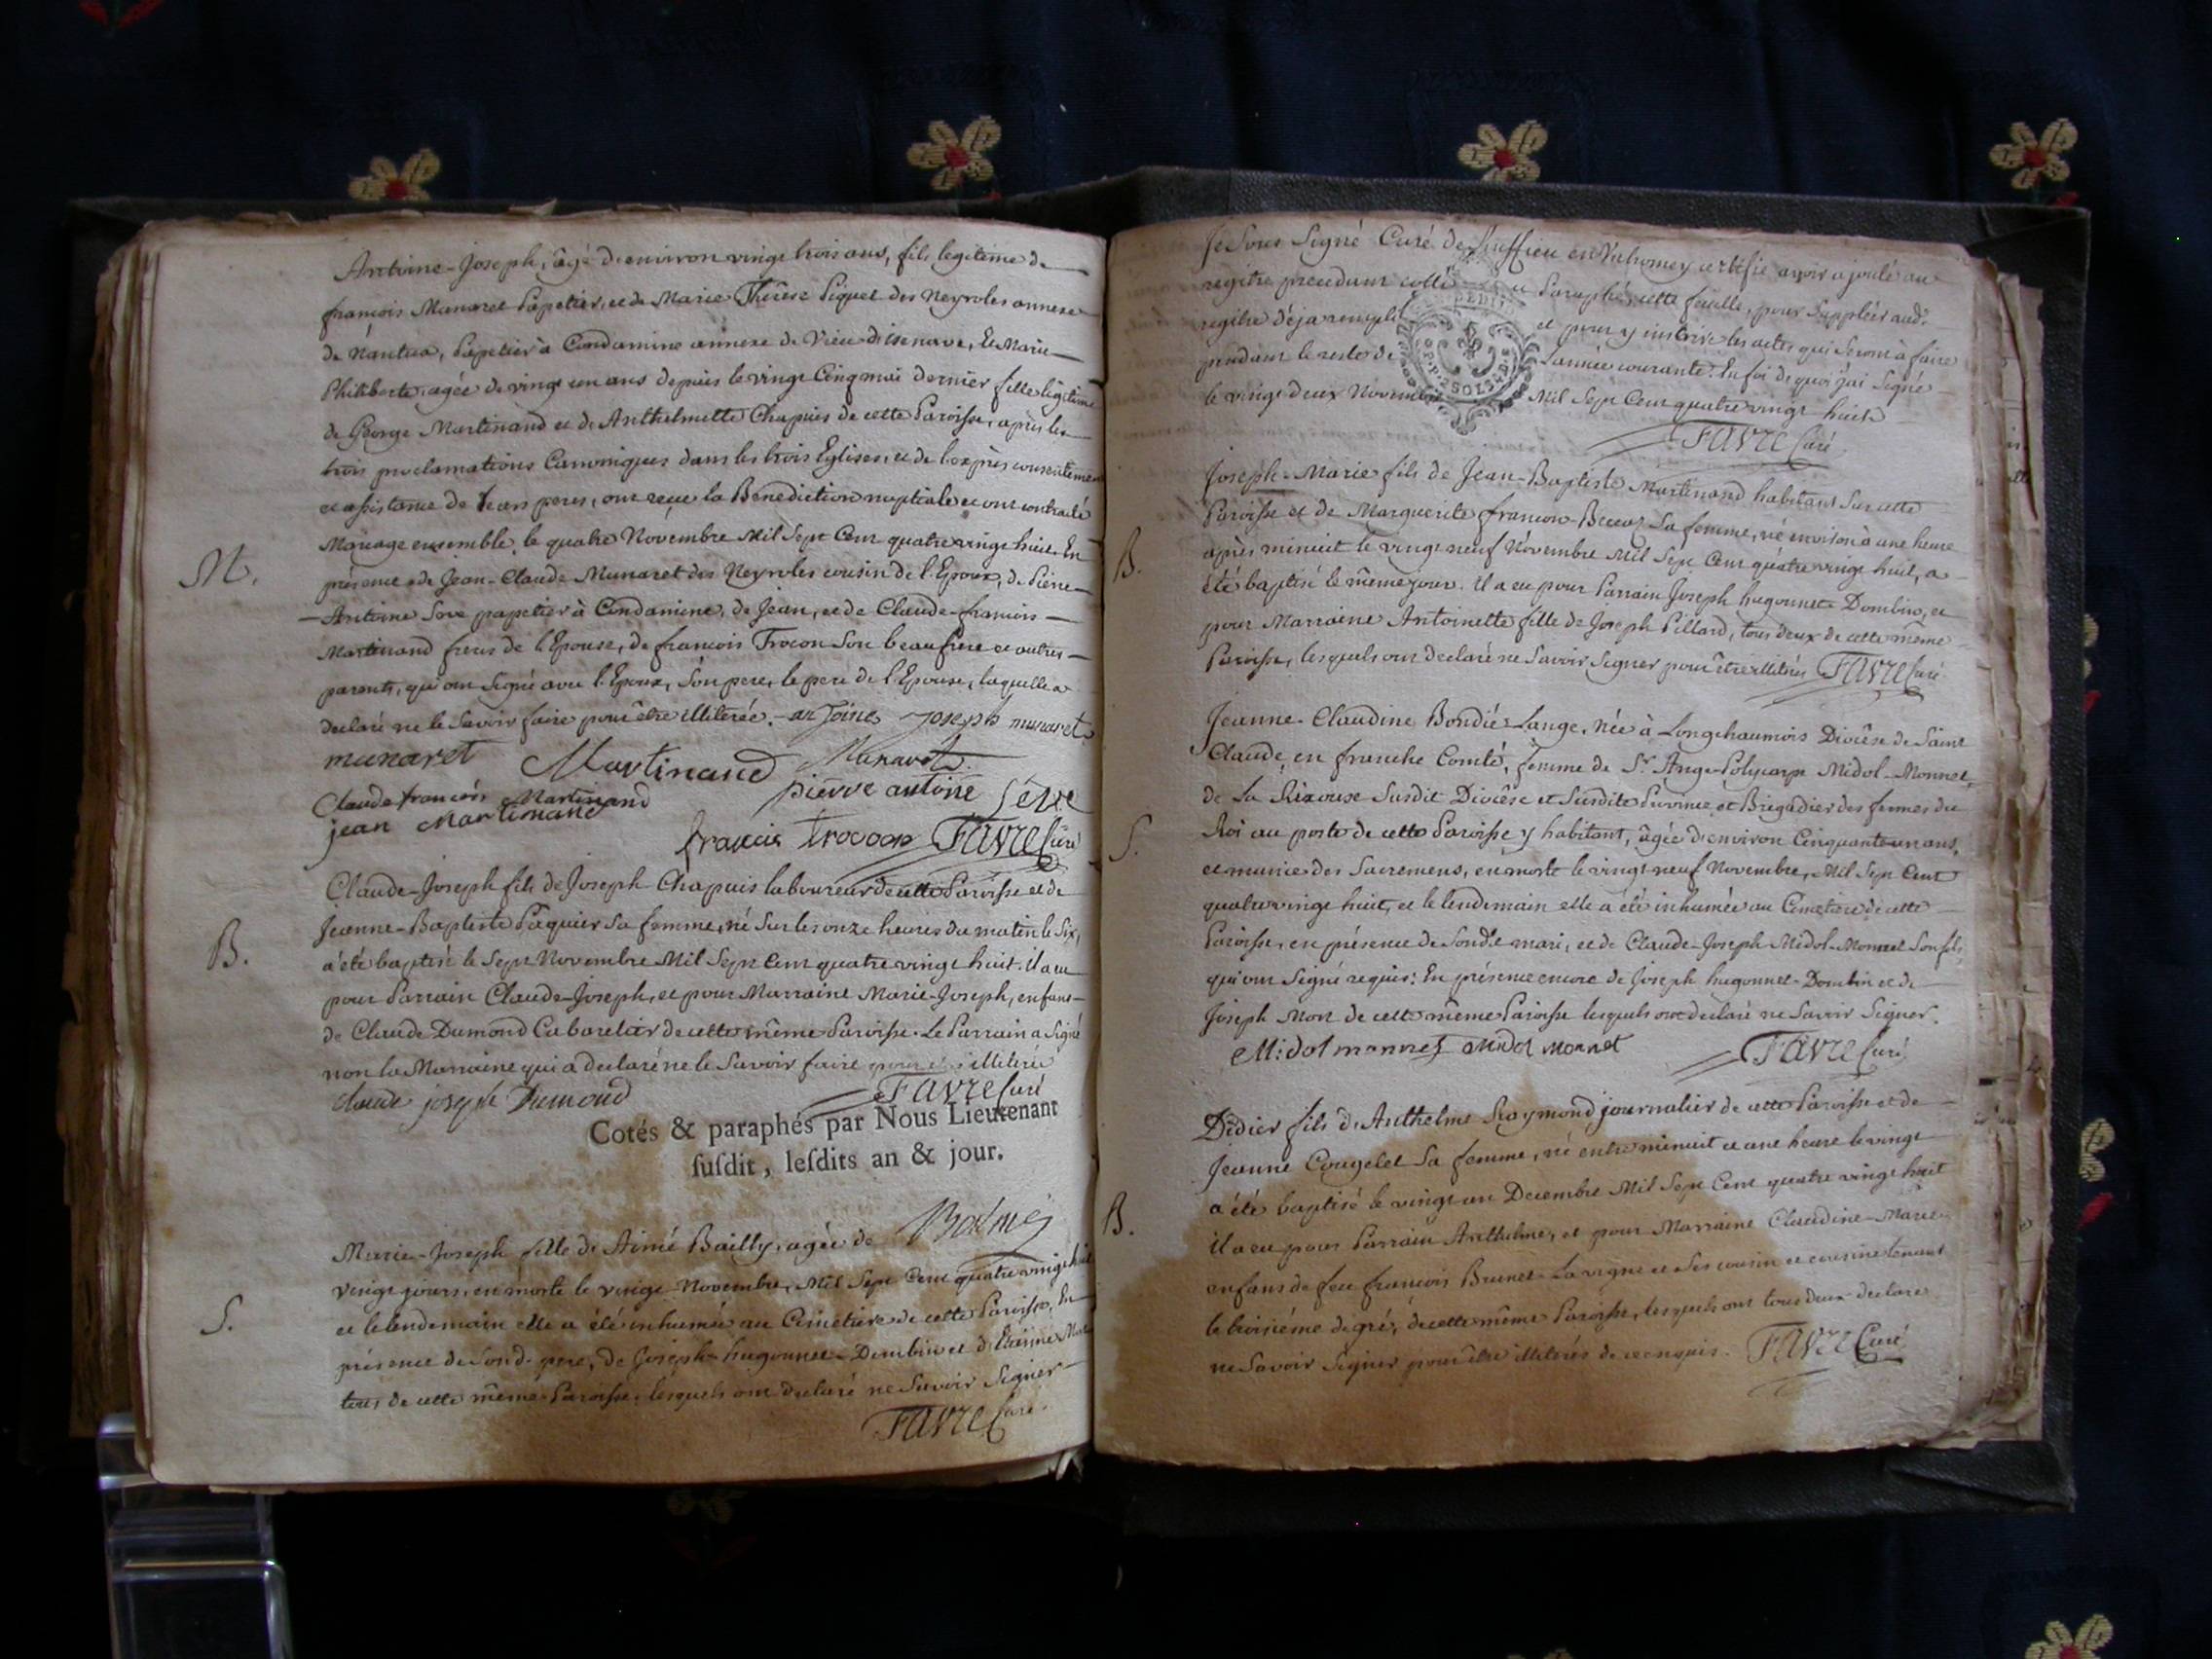 Antoine-Joseph, âgé d'environ vingt trois ans, fils legitime de
françois Munaret Papetier, et de Marie Thérese Piquet des Neyroles annexe
de Nantua, Papetier à Condamine annexe de Vieu disenave, Et Marie
Philiberte, agée de vingt un ans depuis le vingt Cinq mai dernier fille légitime
de George Martinand et de Anthelmette Chapuis de cette Paroisse, après les
trois proclamations Canoniques dans les trois Eglises, et de l'exprès consentement
et assistance de leurs peres, ont reçu la Benediction nuptiale et ont contracté
M.
Mariage ensemble, le quatre Novembre Mil Sept Cent quatre vingt huit. En
présence de Jean-Claude Munaret des Neyroles cousin de l'Epoux, de Pierre
Antoine Seve papetier à Condamine, de Jean, et de Claude-françois
Martinand freres de l'Epouse, de françois Trocon Son beaufrere et autres
parents, qui ont Signé avec l'Epoux, Son pere, le pere de l'Epouse, laquelle a
declaré ne le Savoir faire pour être illiterée. antoine joseph munaret
munaret Martinand Munaret
Claude françois Martinand pierre antoine Seve
jean Martinand
francois trocon Favre Curé
Claude-Joseph fils de Joseph Chapuis laboureur de cette Paroisse et de
B.
Jeanne-Baptiste Paquier Sa femme, né Sur les onze heures du matin le Six,
a été baptisé le Sept Novembre Mil Sept Cent quatre vingt huit. il a eu
pour Parrain Claude-Joseph, et pour Marraine Marie-Joseph, enfans
de Claude Dumond Cabaretier de cette même Paroisse. Le Parrain a Signé
non la Marraine qui a declaré ne le Savoir faire pour illiterée
claude joseph Dumond Favre Curé
Cotés & paraphés par Nous Lieutenant
ſuſdit, leſdits an & jour.
Marie-Joseph fille de Aimé Bailly, agée de Balme
vingt jours, est morte le vingt Novembre, Mil Sept Cent quatre vingt huit
S.
et le lendemain elle a été inhumée au Cimetiere de cette Paroisse, En
présence de Sond. pere, de Joseph hugonnet-Dombin et d'Etienne
tous de cette même Paroisse, lesquels ont declaré ne Savoir Signer
Favre Curé.
Je Sous Signé Curé de Suffieu en Valromey certifie avoir ajouté au
regitre precedant cotté et Paraphé, cette feuille, pour Suppléer aud.
regitre déja rempli et pour y inscrire les actes qui Seront à faire
pendant le reste de l'année courante. En foi de quoi j'ai Signé
le vingt deux Novembre Mil Sept Cent quatre vingt huit
Favre Curé.
Joseph-Marie fils de Jean-Baptiste Martinand habitant Sur cette
Paroisse et de Marguerite françon-Beccaz Sa femme, né environ à une heure
B.
après minuit le vingt neuf Novembre Mil Sept Cent quatre vingt huit, a
été baptisé le même jour. il a eu pour Parrain Joseph hugonnet-Dombin, et
pour Marraine Antoinette fille de Joseph Pillard, tous deux de cette même
Paroisse, lesquels ont declaré ne Savoir Signer pour être illiterés Favre Curé
Jeanne-Claudine Bondiés Lange, Née à Longchaumois Diocèse de Saint
Claude, en franche Comté, femme de Sr. Ange-Polycarpe Midol-Monnet
de La Rixouse Susdit Diocèse et Susdite Province, et Brigadier des fermes du
S.
Roi au poste de cette Paroisse y habitant, âgée d'environ Cinquante un ans,
et munie des Sacremens, est morte le vingt neuf Novembre, Mil Sept Cent
quatre vingt huit, et le lendemain elle a été inhumée au Cimetiere de cette
Paroisse, en présence de Sond. mari, et de Claude-Joseph Midol-Monnet Son fils,
qui ont Signé requis: En présence encore de Joseph hugonnet-Dombin et de
Joseph Mort de cette même Paroisse lesquels ont declaré ne Savoir Signer.
Midol monnet Midol Monnet Favre Curé
Didier fils d'Anthelme Raymond journalier de cette Paroisse et de
Jeanne Cougelet Sa femme, né entre minuit et une heure le vingt
B.
a été baptisé le vingt un Decembre Mil Sept Cent quatre vingt huit
il a eu pour Parrain Anthelme, et pour Marraine Claudine-Marie
enfans de feu françois Brunet-Lavigne et Ses cousin et cousine tenant
le troisième degré, de cette même Paroisse, lesquels ont tous deux declaré
ne Savoir Signer pour être illiterés de ce enquis. Favre Curé